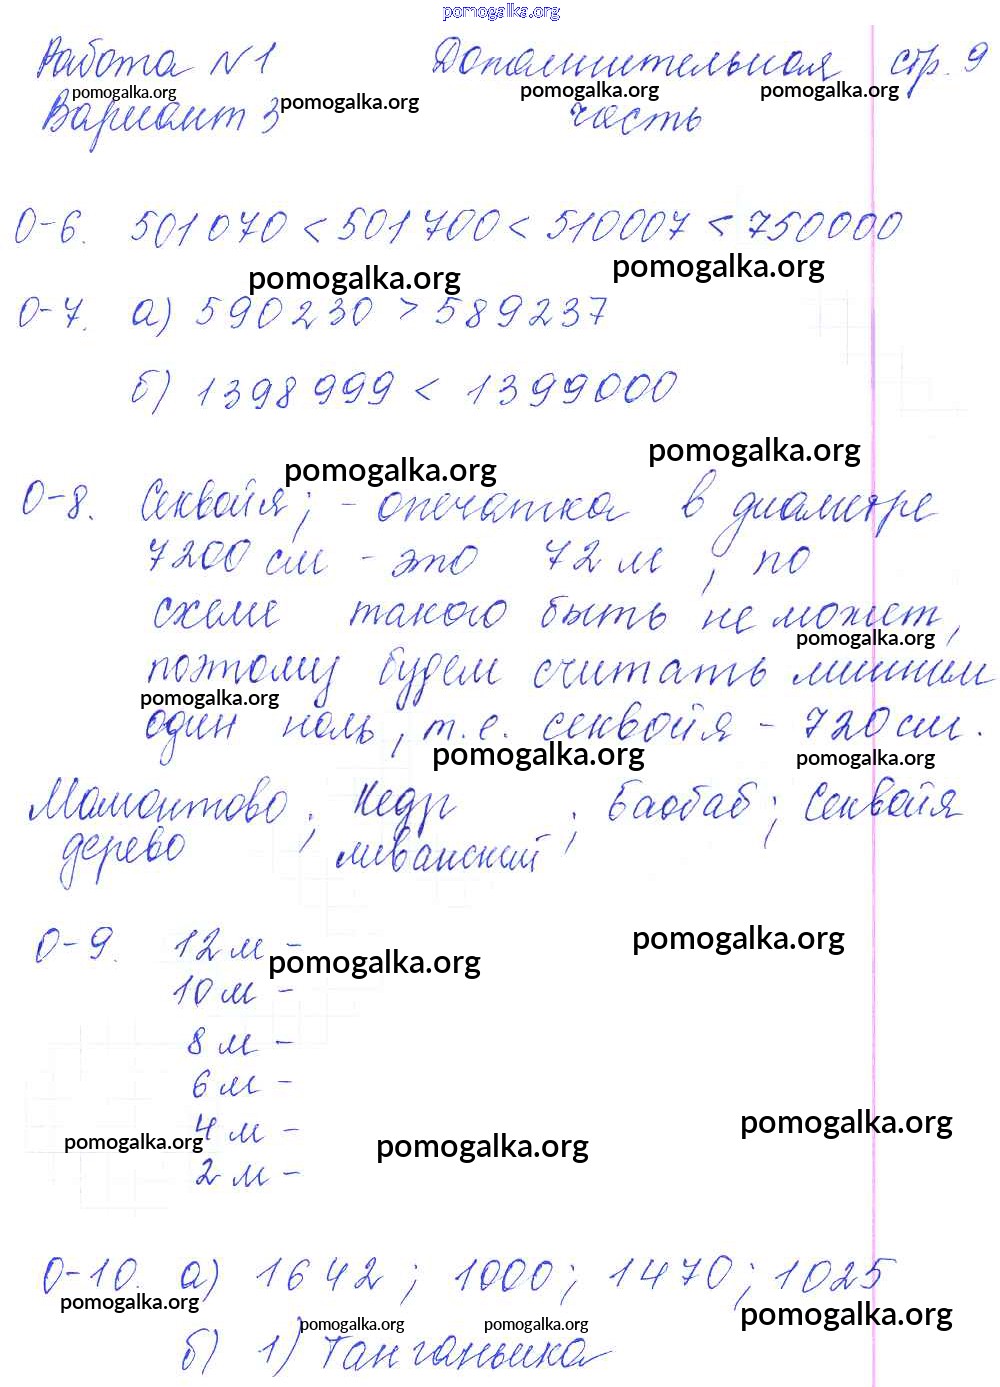 pomogalka.org
Работа N1 Дополнительная стр. 9
pomogalka.org pomogalka.org pomogalka.org pomogalka.org
Вариант 3 часть
О-6. 501070 < 501700 < 510007 < 750000
pomogalka.org pomogalka.org
О-7. а) 590230 > 589237
б) 1398999 < 1399000
pomogalka.org pomogalka.org
О-8. Секвойя; - опечатка в диаметре
7200 см - это 72 м, по
схеме такого быть не может,
pomogalka.org
поэтому будем считать лишним
pomogalka.org
один ноль, т.е. секвойя - 720 см.
pomogalka.org pomogalka.org
Мамонтово ; Кедр ; Баобаб; Секвойя
дерево ливанский
О-9. 12 м -
pomogalka.org pomogalka.org
10 м -
8 м -
6 м -
4 м -
pomogalka.org pomogalka.org pomogalka.org
2 м -
О-10. а) 1642; 1000; 1470; 1025
pomogalka.org pomogalka.org
pomogalka.org pomogalka.org
б) 1) Танганьика